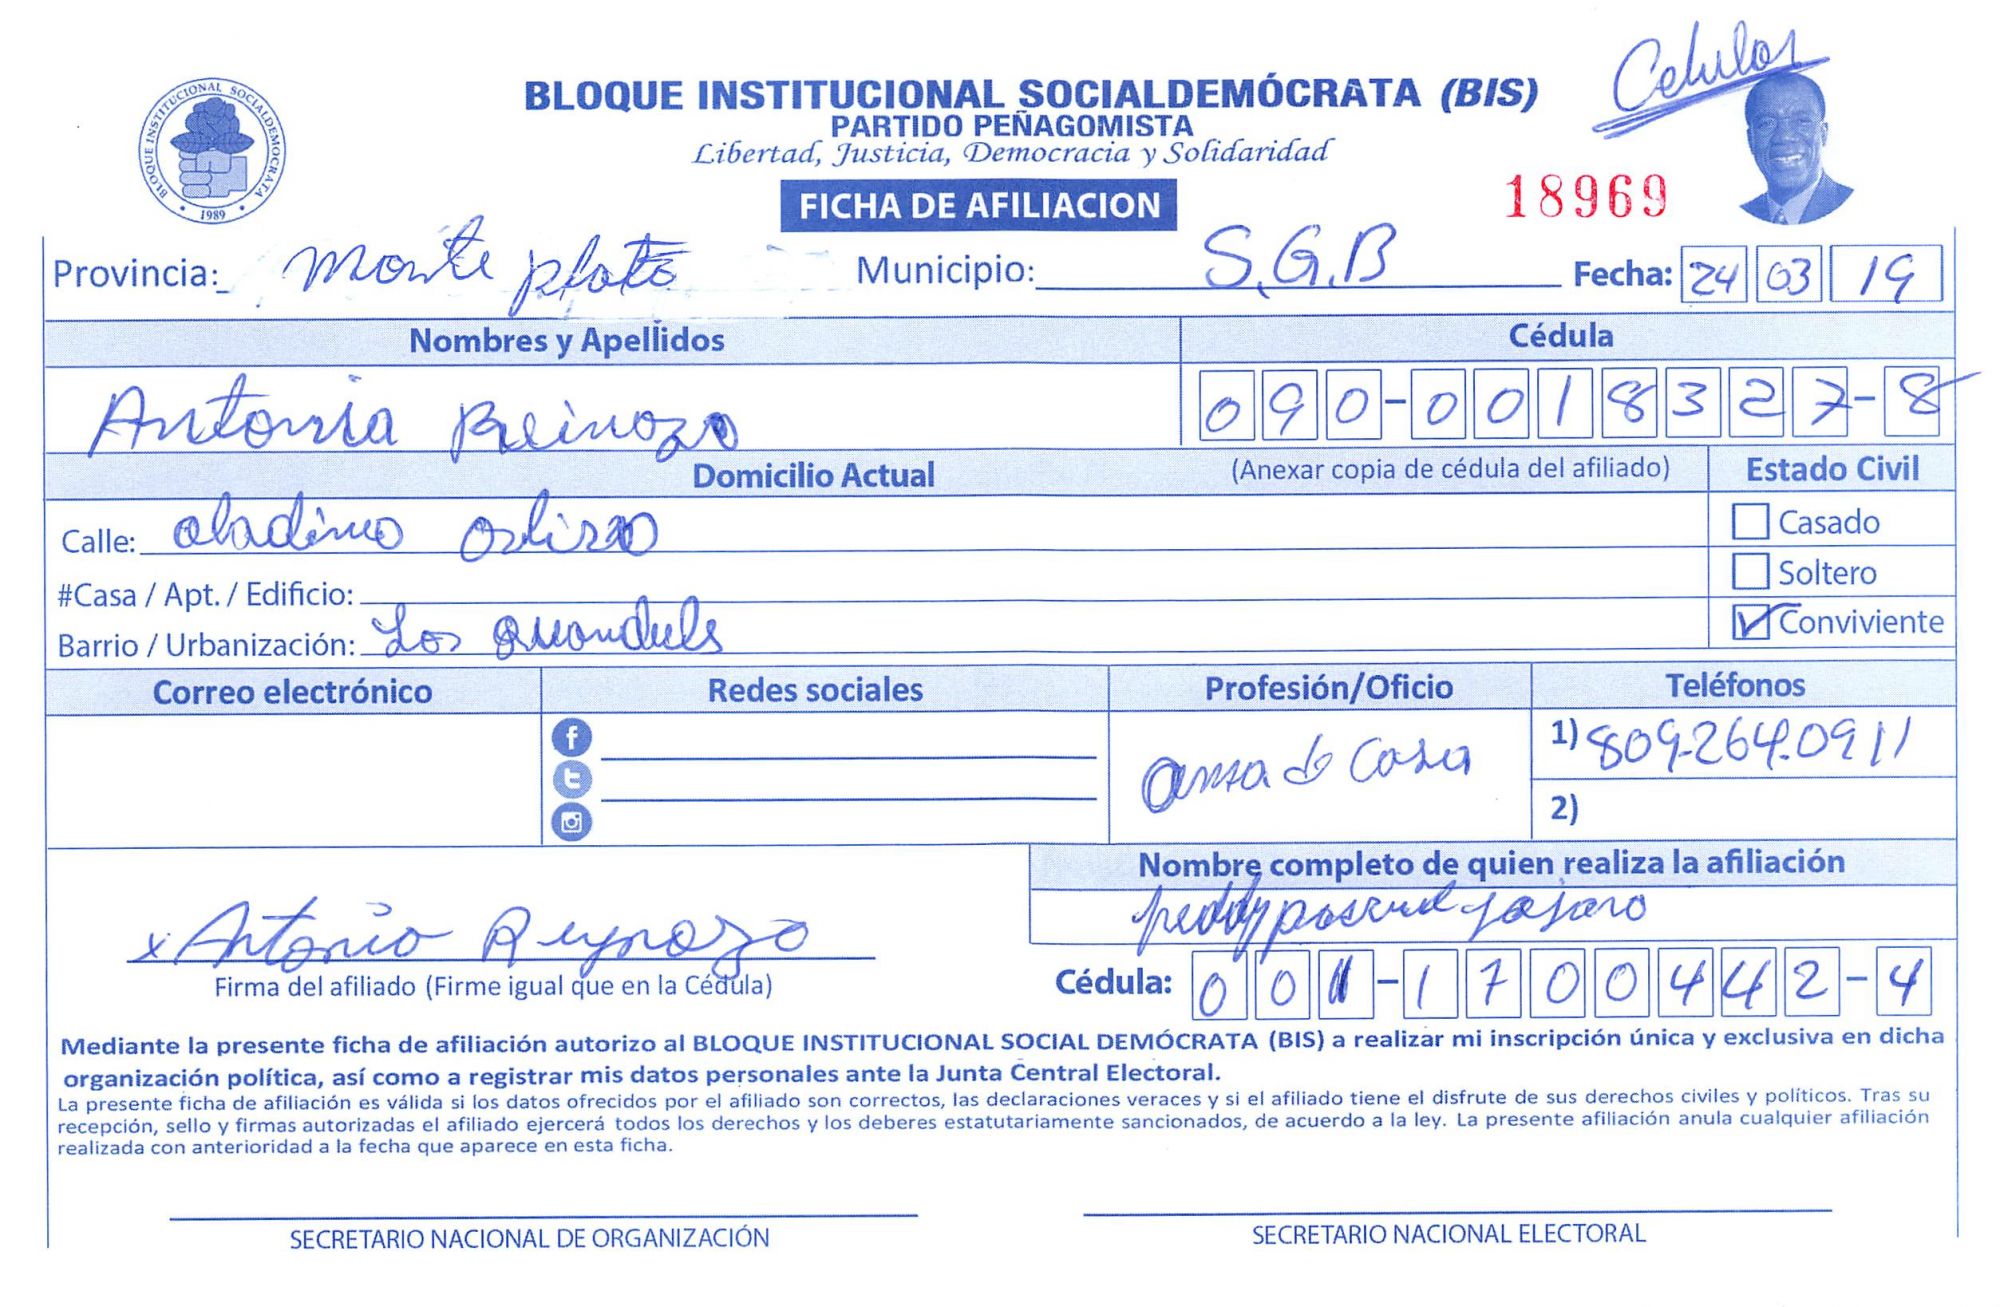 Celular
BLOQUE INSTITUCIONAL SOCIALDEMÓCRATA (BIS)
PARTIDO PEÑAGOMISTA
Libertad, Justicia, Democracia y Solidaridad
BLOQUE INSTITUCIONAL SOCIALDEMOCRATA
1989
FICHA DE AFILIACION
18969
Provincia: Monte plata Municipio: S.G.B Fecha: 24 03 19
Nombres y Apellidos Cédula
Antonia Reinozo 090-0018327-8
Domicilio Actual (Anexar copia de cédula del afiliado) Estado Civil
Calle: Casado
#Casa / Apt. / Edificio: Soltero
Barrio / Urbanización: Los Conviviente
Correo electrónico Redes sociales Profesión/Oficio Teléfonos
ama de Casa 1) 809-264-0911
2)
Nombre completo de quien realiza la afiliación
x Antonio Reynozo
Firma del afiliado (Firme igual que en la Cédula) Cédula: 001-1700442-4
Mediante la presente ficha de afiliación autorizo al BLOQUE INSTITUCIONAL SOCIAL DEMÓCRATA (BIS) a realizar mi inscripción única y exclusiva en dicha
organización política, así como a registrar mis datos personales ante la Junta Central Electoral.
La presente ficha de afiliación es válida si los datos ofrecidos por el afiliado son correctos, las declaraciones veraces y si el afiliado tiene el disfrute de sus derechos civiles y políticos. Tras su
recepción, sello y firmas autorizadas el afiliado ejercerá todos los derechos y los deberes estatutariamente sancionados, de acuerdo a la ley. La presente afiliación anula cualquier afiliación
realizada con anterioridad a la fecha que aparece en esta ficha.
SECRETARIO NACIONAL DE ORGANIZACIÓN SECRETARIO NACIONAL ELECTORAL